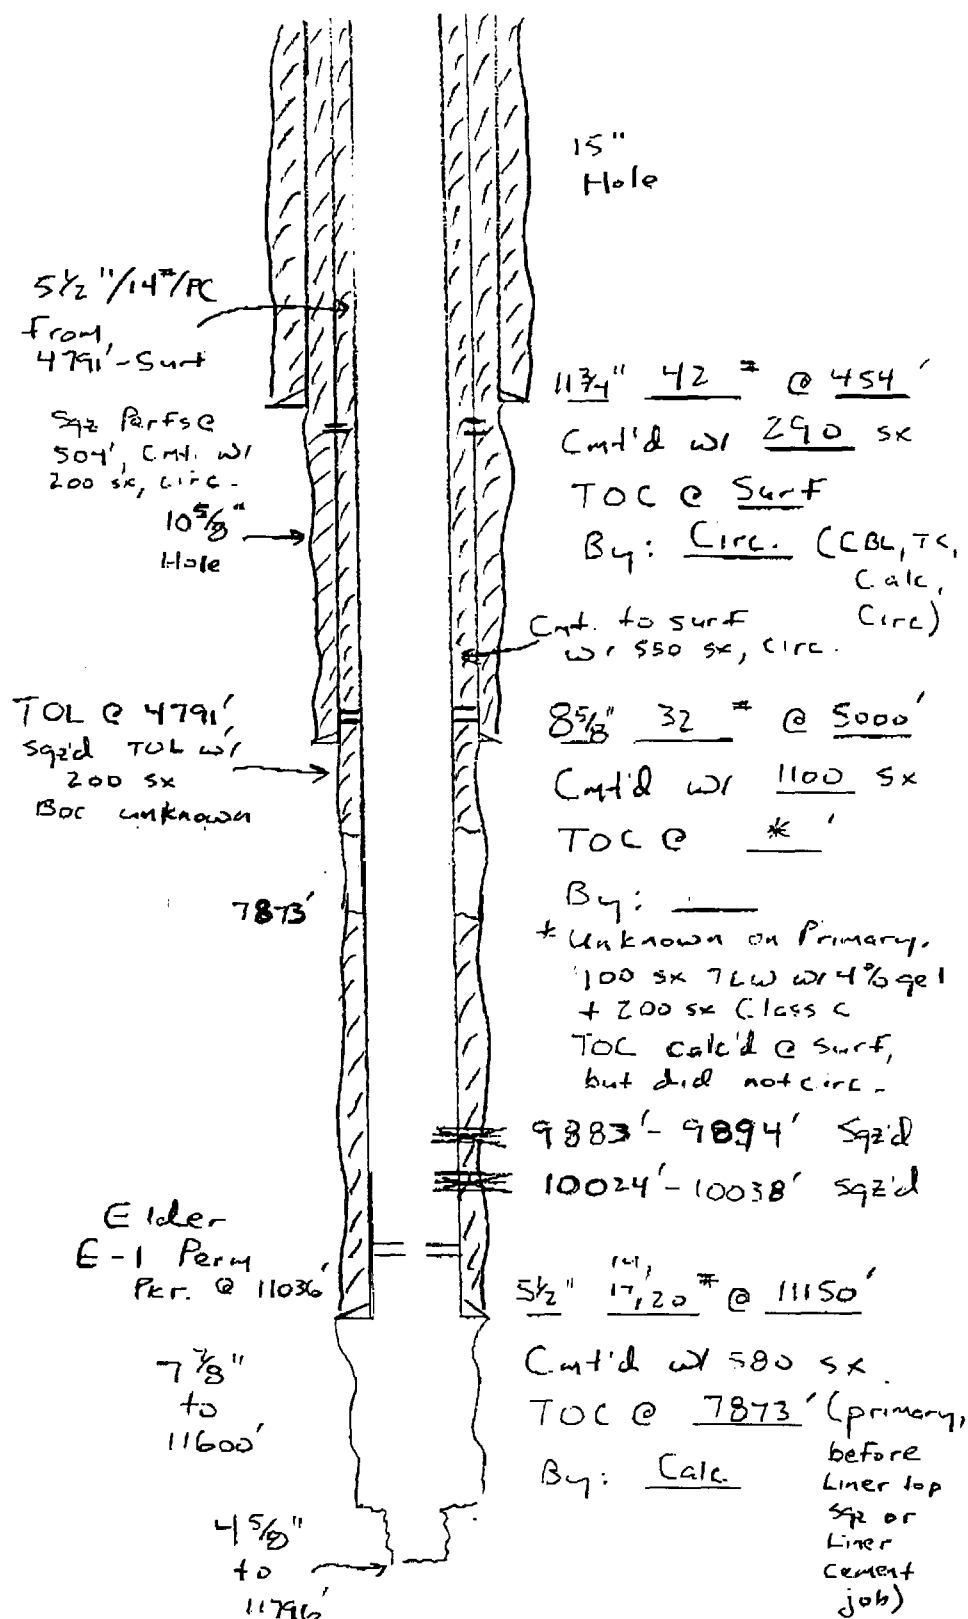 15"
Hole
5½"/14#/PC
From
4791'-Surf
Sqz Perfs @
504', Cmt. w/
200 sx, circ.
10⅝"
Hole
11¾" 42 # @ 454'
Cmt'd w/ 290 sx
TOC @ Surf
By: Circ. (CBL, TS,
Calc,
Circ)
Cmt. to surf
w/ 550 sx, circ.
TOL @ 4791'
Sqz'd TOL w/
200 sx
BOC unknown
8⅝" 32 # @ 5000'
Cmt'd w/ 1100 sx
TOC @ * '
By:
7873'
* Unknown on Primary.
100 sx TLW w/ 4% gel
+ 200 sx Class C
TOC calc'd @ Surf,
but did not circ.
9883'-9894' Sqz'd
10024'-10038' Sqz'd
Elder
E-1 Perm
Pkr. @ 11036'
14,
5½" 17,20 # @ 11150'
Cmt'd w/ 580 sx
TOC @ 7873' (primary,
before
Liner top
sqz or
Liner
cement
job)
By: Calc.
7⅞"
to
11600'
4⅝"
to
11796'